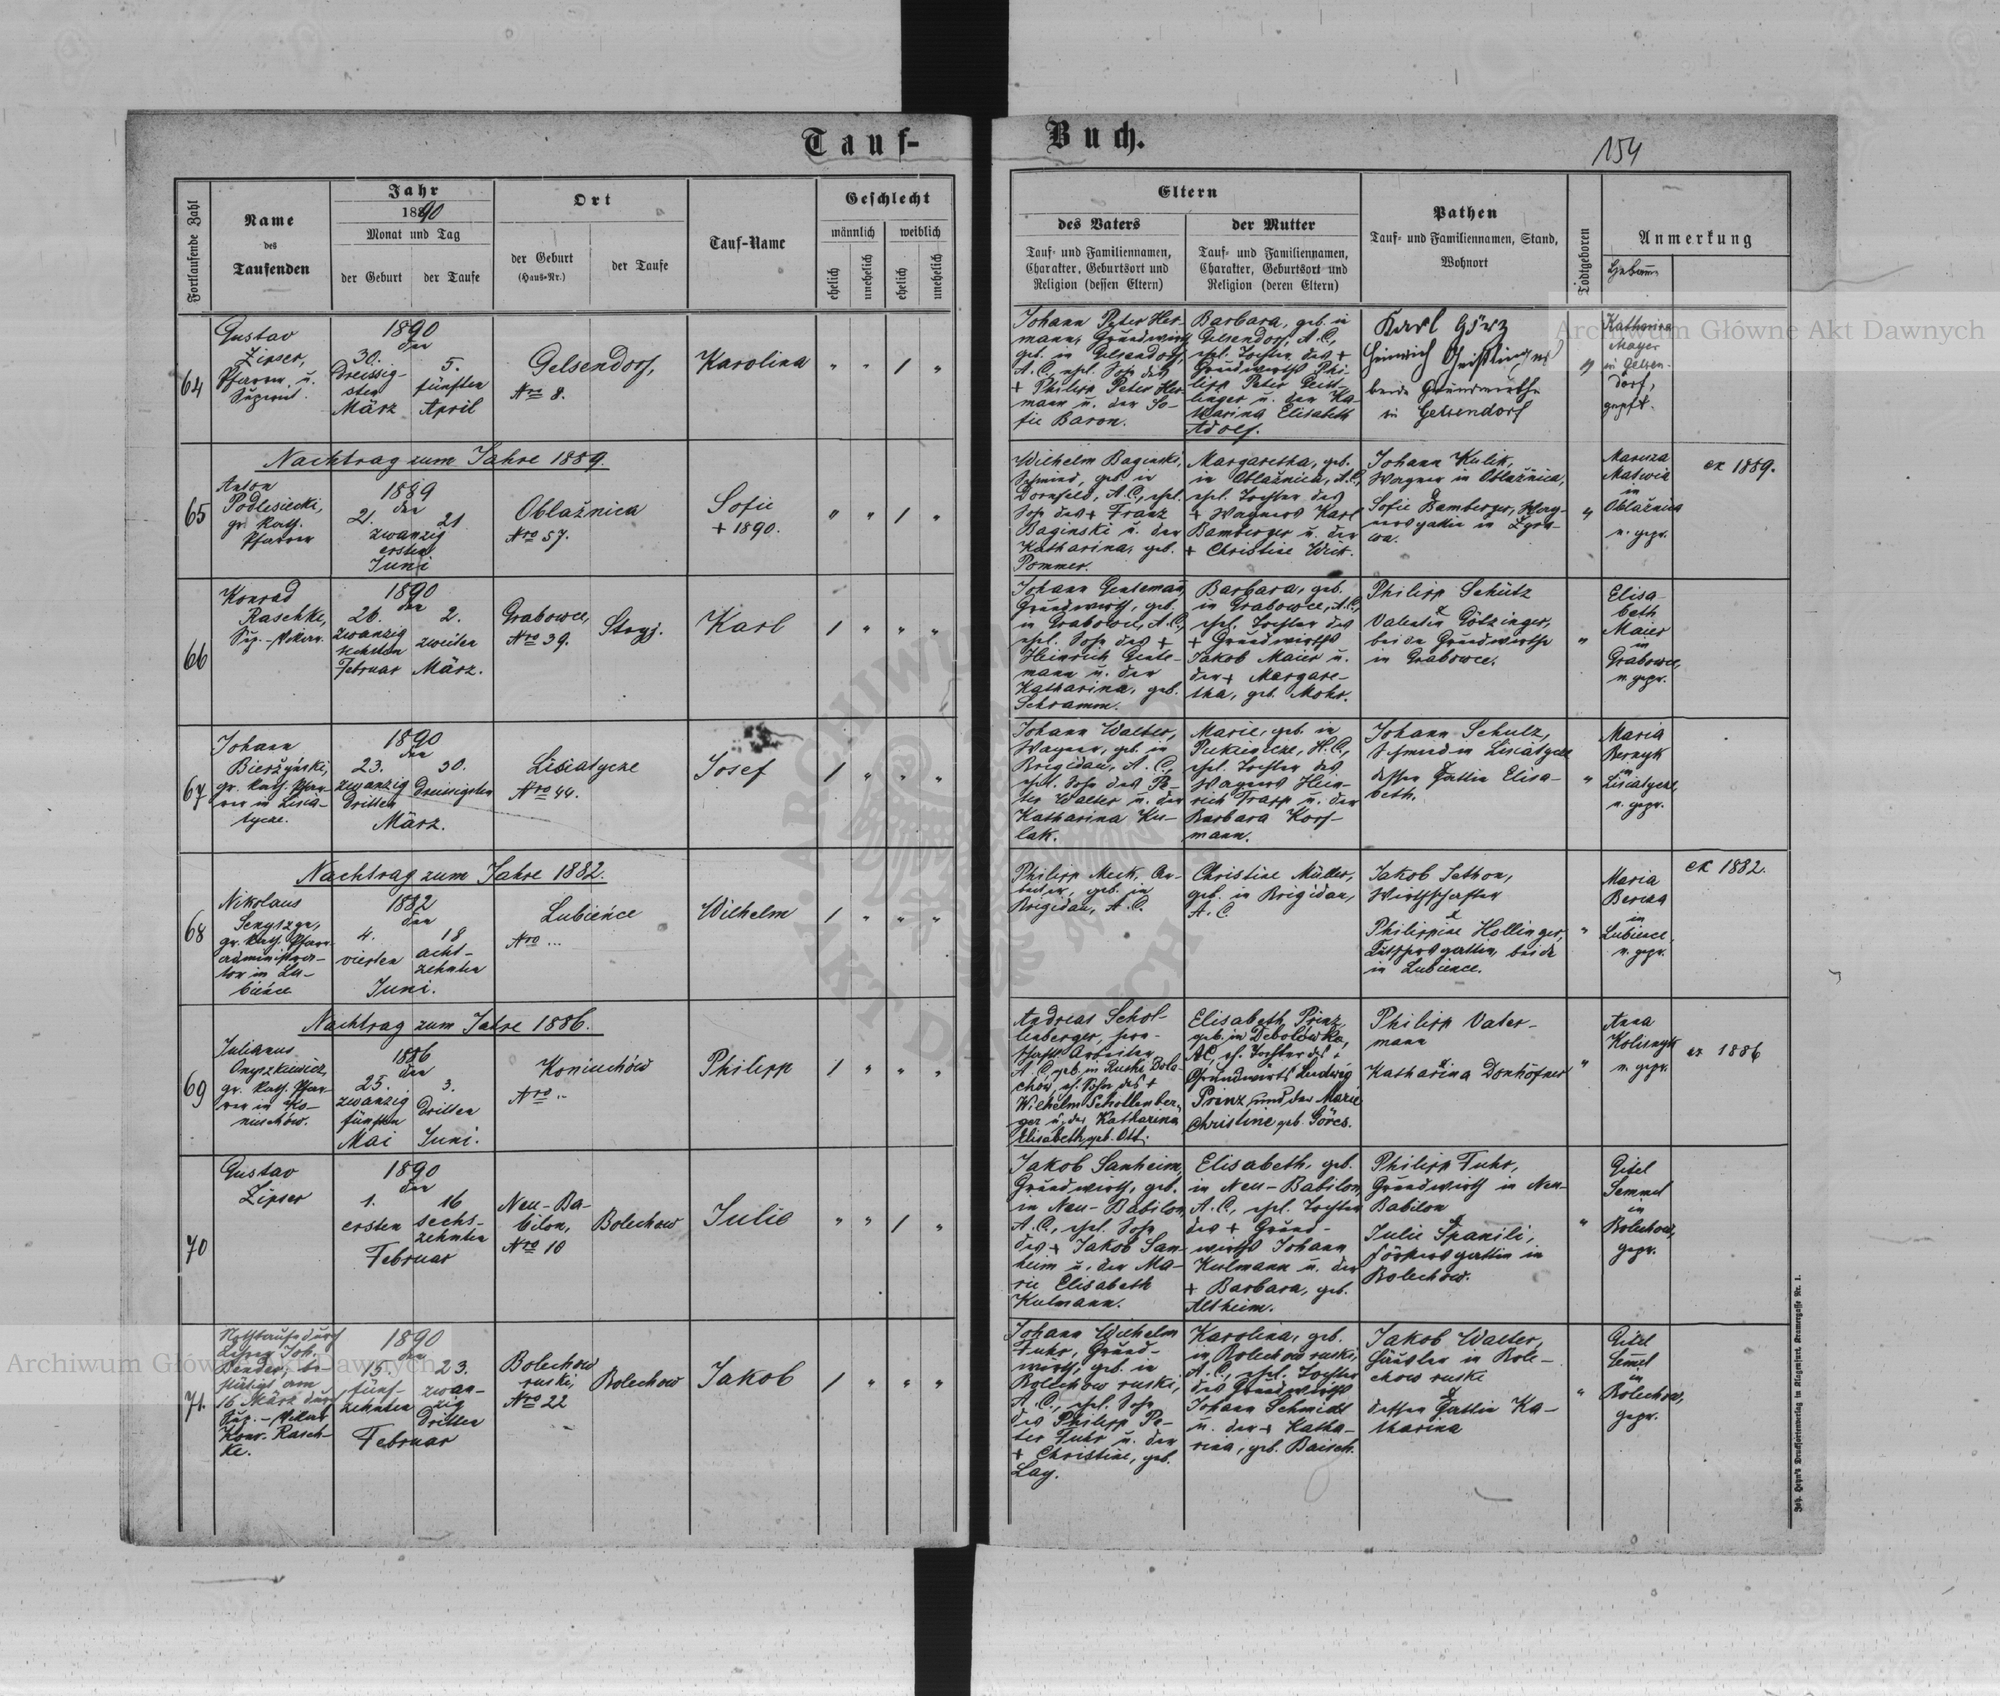 Tauf-
Buch.
154
Fortlaufende Zahl
Name
des
Taufenden
Jahr
1890
Monat und Tag
der Geburt
der Taufe
Ort
der Geburt
(Haus-Nr.)
der Taufe
Tauf-Name
Geschlecht
männlich
weiblich
ehelich
unehelich
ehelich
unehelich
Eltern
des Vaters
Tauf- und Familiennamen,
Charakter, Geburtsort und
Religion (dessen Eltern)
der Mutter
Tauf- und Familiennamen,
Charakter, Geburtsort und
Religion (deren Eltern)
Pathen
Tauf- und Familiennamen, Stand,
Wohnort
Todtgeboren
Anmerkung
64
Gustav
Zipser,
Pfarrer u.
1890
den
30.
Dreissig-
sten
März
5.
fünften
April
Gelsendorf,
Nro 8.
Karolina
" " / "
Johann Peter Her-
mann, Grundwirth
geb. in Gelsendorf,
A.C., ehel. Sohn des
+ Philipp Peter Her-
mann u. der So-
fie Baron.
Barbara, geb. in
Gelsendorf, A.C.,
ehel. Tochter des +
Grundwirths Phi-
lipp Peter Geist-
linger u. der Ka-
tharina Elisabeth
Adolf.
Karl Görz
Heinrich Geistlinger
beide Grundwirthe
in Gelsendorf
Katharina
Mayer
in Gelsen-
dorf,
geprft.
Nachtrag zum Jahre 1889.
65
Anton
Podlesiecki,
gr. kath.
Pfarrer
1889
den
21. 21
zwanzig
ersten
Juni
Oblaźnica
Nro 57.
Sofie
+ 1890.
" " / "
Wilhelm Baginski,
Schmied, geb. in
Dornfeld, A.C., ehel.
Sohn des + Franz
Baginski u. der
Katharina, geb.
Pommer.
Margaretha, geb.
in Oblaźnica, A.C.,
ehel. Tochter des
+ Wagners Karl
Bamberger u. der
+ Christine Weik.
Johann Kulik,
Wagner in Oblaźnica,
Sofie Bamberger, Wag-
nersgattin in
"
Matwia
in
Oblaźnica
u. gepr.
ex 1889.
66
Konrad
Raschke,
Sup.-Vikar.
1890
den
26.
zwanzig
sechsten
Februar
2.
zweiten
März.
Grabowce,
Nro 39.
Stryj.
Karl
/ " " "
Johann Gentemann,
Grundwirth, geb.
in Grabowce, A.C.,
ehel. Sohn des +
Heinrich Gente-
mann u. der
Katharina, geb.
Schramm.
Barbara, geb.
in Grabowce, A.C.,
ehel. Tochter des
+ Grundwirths
Jakob Maier u.
der + Margare-
tha, geb. Mohr.
Philipp Schütz
Valentin Götzinger,
beide Grundwirthe
in Grabowce.
"
Elisa-
beth
Maier
in
Grabowce,
u. gepr.
67
Johann
Bierżyński,
gr. kath. Pfar-
rer in Lisia-
tycze.
1890
den
23.
zwanzig
dritten
30.
Dreissigsten
März.
Lisiatycze
Nro 44.
Josef
/ " " "
Johann Walter,
Wagner, geb. in
Brigidau, A.C.,
ehel. Sohn des Pe-
ter Walter u. der
Katharina Ku-
lak.
Marie, geb. in
Pukienicze, H.C.,
ehel. Tochter des
Wagners Hein-
rich Trapp u. der
Barbara Korf-
mann.
Johann Schulz,
Schmied in Lisiatycze
dessen Gattin Elisa-
beth.
"
Maria
Bernyk
in
Lisiatycze,
u. gepr.
Nachtrag zum Jahre 1882.
68
Nikolaus
gr. kath. Pfarr-
administra-
tor in Lu-
bieńce
1882
den
4.
vierten
18
acht-
zehnten
Juni.
Lubieńce
Nro ...
Wilhelm
/ " " "
Philipp Meck, Ar-
beiter, geb. in
Brigidau, A.C.
Christine Müller,
geb. in Brigidau,
A.C.
Jakob Jathon,
Wirthschafter
Philippine Hollinger,
beide
in Lubience.
"
Maria
in
Lubience.
u. gepr.
ex 1882.
Nachtrag zum Jahre 1886.
69
Julianus
Onyszkiewicz,
gr. kath. Pfar-
rer in Ko-
niuchów.
1886
den
25.
zwanzig
fünften
Mai
3.
dritten
Juni.
Koniuchów
Nro ..
Philipp
/ " " "
Andreas Schol-
lenberger, herr-
schaftl. Arbeiter,
A.C. geb. in Ruski Bole-
chów, eh. Sohn des +
Wilhelm Schollenber-
ger u. der Katharina
Elisabeth geb. Ott.
Elisabeth Prinz,
geb. in Debolowka,
AC, eh. Tochter des +
Grundwirts Ludwig
Prinz und der Marie
Christine geb. Göres.
Philipp Vater-
mann
Katharina Donhöfner
"
Anna
Kolisnyk
u. gepr.
ex 1886
70
Gustav
Zipser
1890
den
1.
ersten
16
sechs-
zehnten
Februar
Neu-Ba-
bilon,
Nro 10
Bolechow
Julie
" " / "
Jakob Sanheim,
Grundwirth, geb.
in Neu-Babilon,
A.C., ehel. Sohn
des + Jakob San-
heim u. der Ma-
rie Elisabeth
Kulmann.
Elisabeth, geb.
in Neu-Babilon,
A.C., ehel. Tochter
des + Grund-
wirths Johann
Kulmann u. der
+ Barbara, geb.
Altheim.
Philipp Fuhr,
Grundwirth in Neu-
Babilon
Julie Spanili,
Försters gattin in
Bolechow.
"
Gitel
Semmel
in
Bolechow,
gepr.
71.
Nothtaufe durch
Lehrer Joh.
Bender, be-
stätigt am
16 März durch
Sup.-Vikar
Konr. Rasch-
ke.
1890
den
15.
fünf-
zehnten
23.
zwan-
zig
dritten
Februar
Bolechow
ruski,
Nro 22
Bolechow
Jakob
/ " " "
Johann Wilhelm
Fuhr, Grund-
wirth, geb. in
Bolechow ruski,
A.C., ehel. Sohn
des Philipp Pe-
ter Fuhr u. der
+ Christine, geb.
Lay.
Karolina, geb.
in Bolechow ruski,
A.C., ehel. Tochter
des Grundwirths
Johann Schmidt
u. der + Katha-
rina, geb. Baisch.
Jakob Walter,
Häusler in Bole-
chow ruski
dessen Gattin Ka-
tharina
"
Gitel
Semel
in
Bolechow,
gepr.
Joh. Heyn's Drucksortenverlag in Klagenfurt. Kramergasse Nr. 1.
Archiwum Główne Akt Dawnych
Archiwum Główne Akt Dawnych